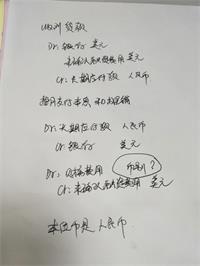 收到贷款
Dr: 银行 美元
未确认融资费用 美元
Cr: 长期应付款 人民币
按月支付本息
Dr: 长期应付款 人民币
Cr: 银行 美元
Dr: 财务费用 币别?
Cr: 未确认融资费用 美元
本位币是人民币